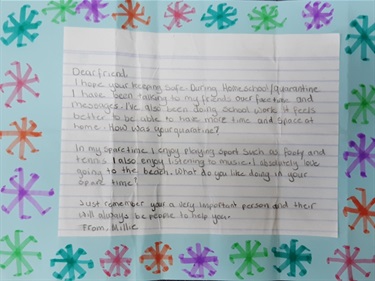 Dear friend,
I hope your keeping safe. During Homeschool/quarantine
I have been talking to my friends over facetime and
messages. I've also been doing school work it feels
better to be able to have more time and space at
home. How was your quarantine?
In my sparetime I enjoy playing sport such as footy and
tennis I also enjoy listening to music. I absolutely love
going to the beach. What do you like doing in your
spare time?
Just remember your a very important person and their
will always be people to help you.
From, Millie